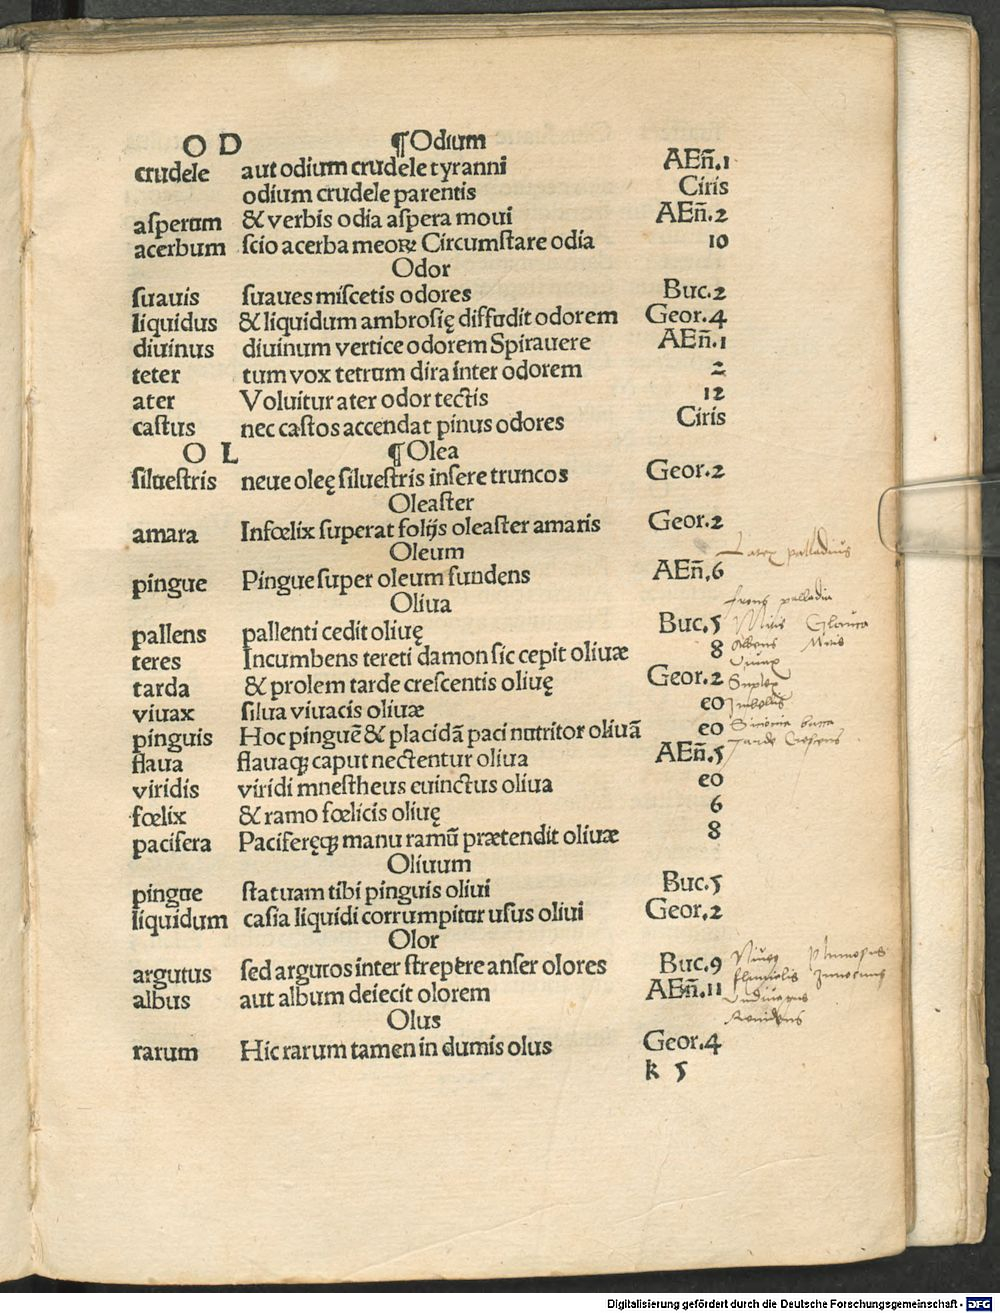 O D ¶Odium
crudele aut odium crudele tyranni AEn̄.1
odium crudele parentis Ciris
asperum & verbis odia aſpera moui AEn̄.2
acerbum ſcio acerba meoꝝ Circumſtare odia 10
Odor
ſuauis ſuaues miſcetis odores Buc.2
liquidus & liquidum ambroſię diffudit odorem Geor.4
diuinus diuinum vertice odorem Spirauere AEn̄.1
teter tum vox tetrum dira inter odorem 2
ater Voluitur ater odor tectis 12
caſtus nec caſtos accendat pinus odores Ciris
O L ¶Olea
ſilueſtris neue oleę ſilueſtris inſere truncos Geor.2
Oleaſter
amara Infœlix ſuperat folijs oleaſter amaris Geor.2
Oleum
Latex palladius
pingue Pingue ſuper oleum fundens AEn̄.6
Oliua
frons palladia
pallens pallenti cedit oliuę Buc.5 Mitis Glauca
teres Incumbens tereti damon ſic cepit oliuæ 8
Viuax
tarda & prolem tarde creſcentis oliuę Geor.2 Suplex
viuax ſilua viuacis oliuæ eo Imbellis
pinguis Hoc pinguē & placidā paci nutritor oliuā eo
Tarde Crescens
flaua flauaqꝫ caput nectentur oliua AEn̄.5
viridis viridi mneſtheus euinctus oliua eo
fœlix & ramo fœlicis oliuę 6
pacifera Paciferęqꝫ manu ramū prætendit oliuæ 8
Oliuum
pingue ſtatuam tibi pinguis oliui Buc.5
liquidum caſia liquidi corrumpitur uſus oliui Geor.2
Olor
argutus ſed argutos inter ſtrepere anſer olores Buc.9 Plumosus
albus aut album deiecit olorem AEn̄.11
Olus
rarum Hic rarum tamen in dumis olus Geor.4
k 5
Digitalisierung gefördert durch die Deutsche Forschungsgemeinschaft - DFG